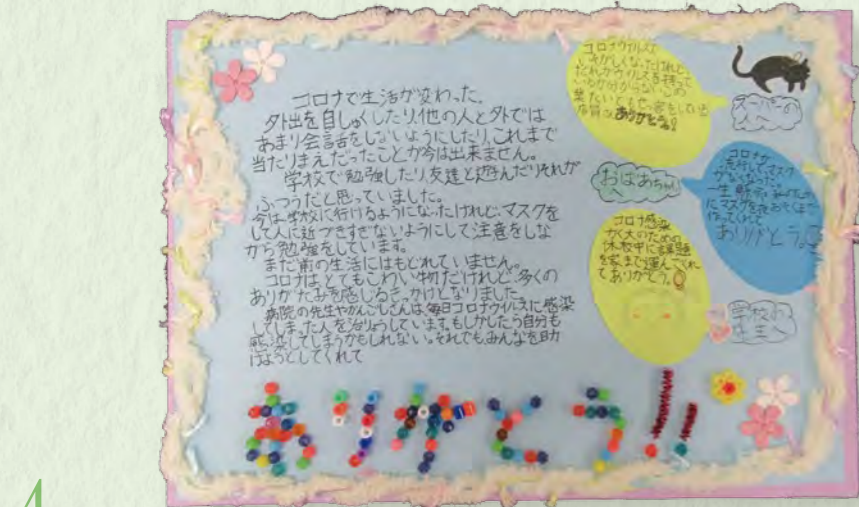 コロナで生活が変わった。
外出を自しゅくしたり、他の人と外では
あまり会話をしないようにしたり、これまで
当たりまえだったことが今は出来ません。
学校で勉強したり、友達と遊んだりそれが
ふつうだと思っていました。
今は学校に行けるようになったけれど、マスクを
して人に近づきすぎないようにして注意をしな
がら勉強をしています。
まだ前の生活にはもどれていません。
コロナはとてもこわい物だけれど、多くの
ありがたみを感じるきっかけとなりました。
病院の先生やかんごしさんは、毎日コロナウイルスに感染
してしまった人を治りょうしています。もしかしたら自分も
感染してしまうかもしれない。それでも、みんなを助
けようとしてくれて
ありがとう!!
コロナウイルスで
いそがしくなったけれど、
だれがウイルスを持って
いるか分からない
ありがとう!
スーパーの
人へ
おばあちゃんへ
コロナが
流行してマスク
がなくなった
一生けん
にマスクを夜おそくまで
作ってくれて
ありがとう。
コロナ感染
かく大のための
休校中に課題
を家まで運んでくれ
てありがとう。
学校の
先生へ
4